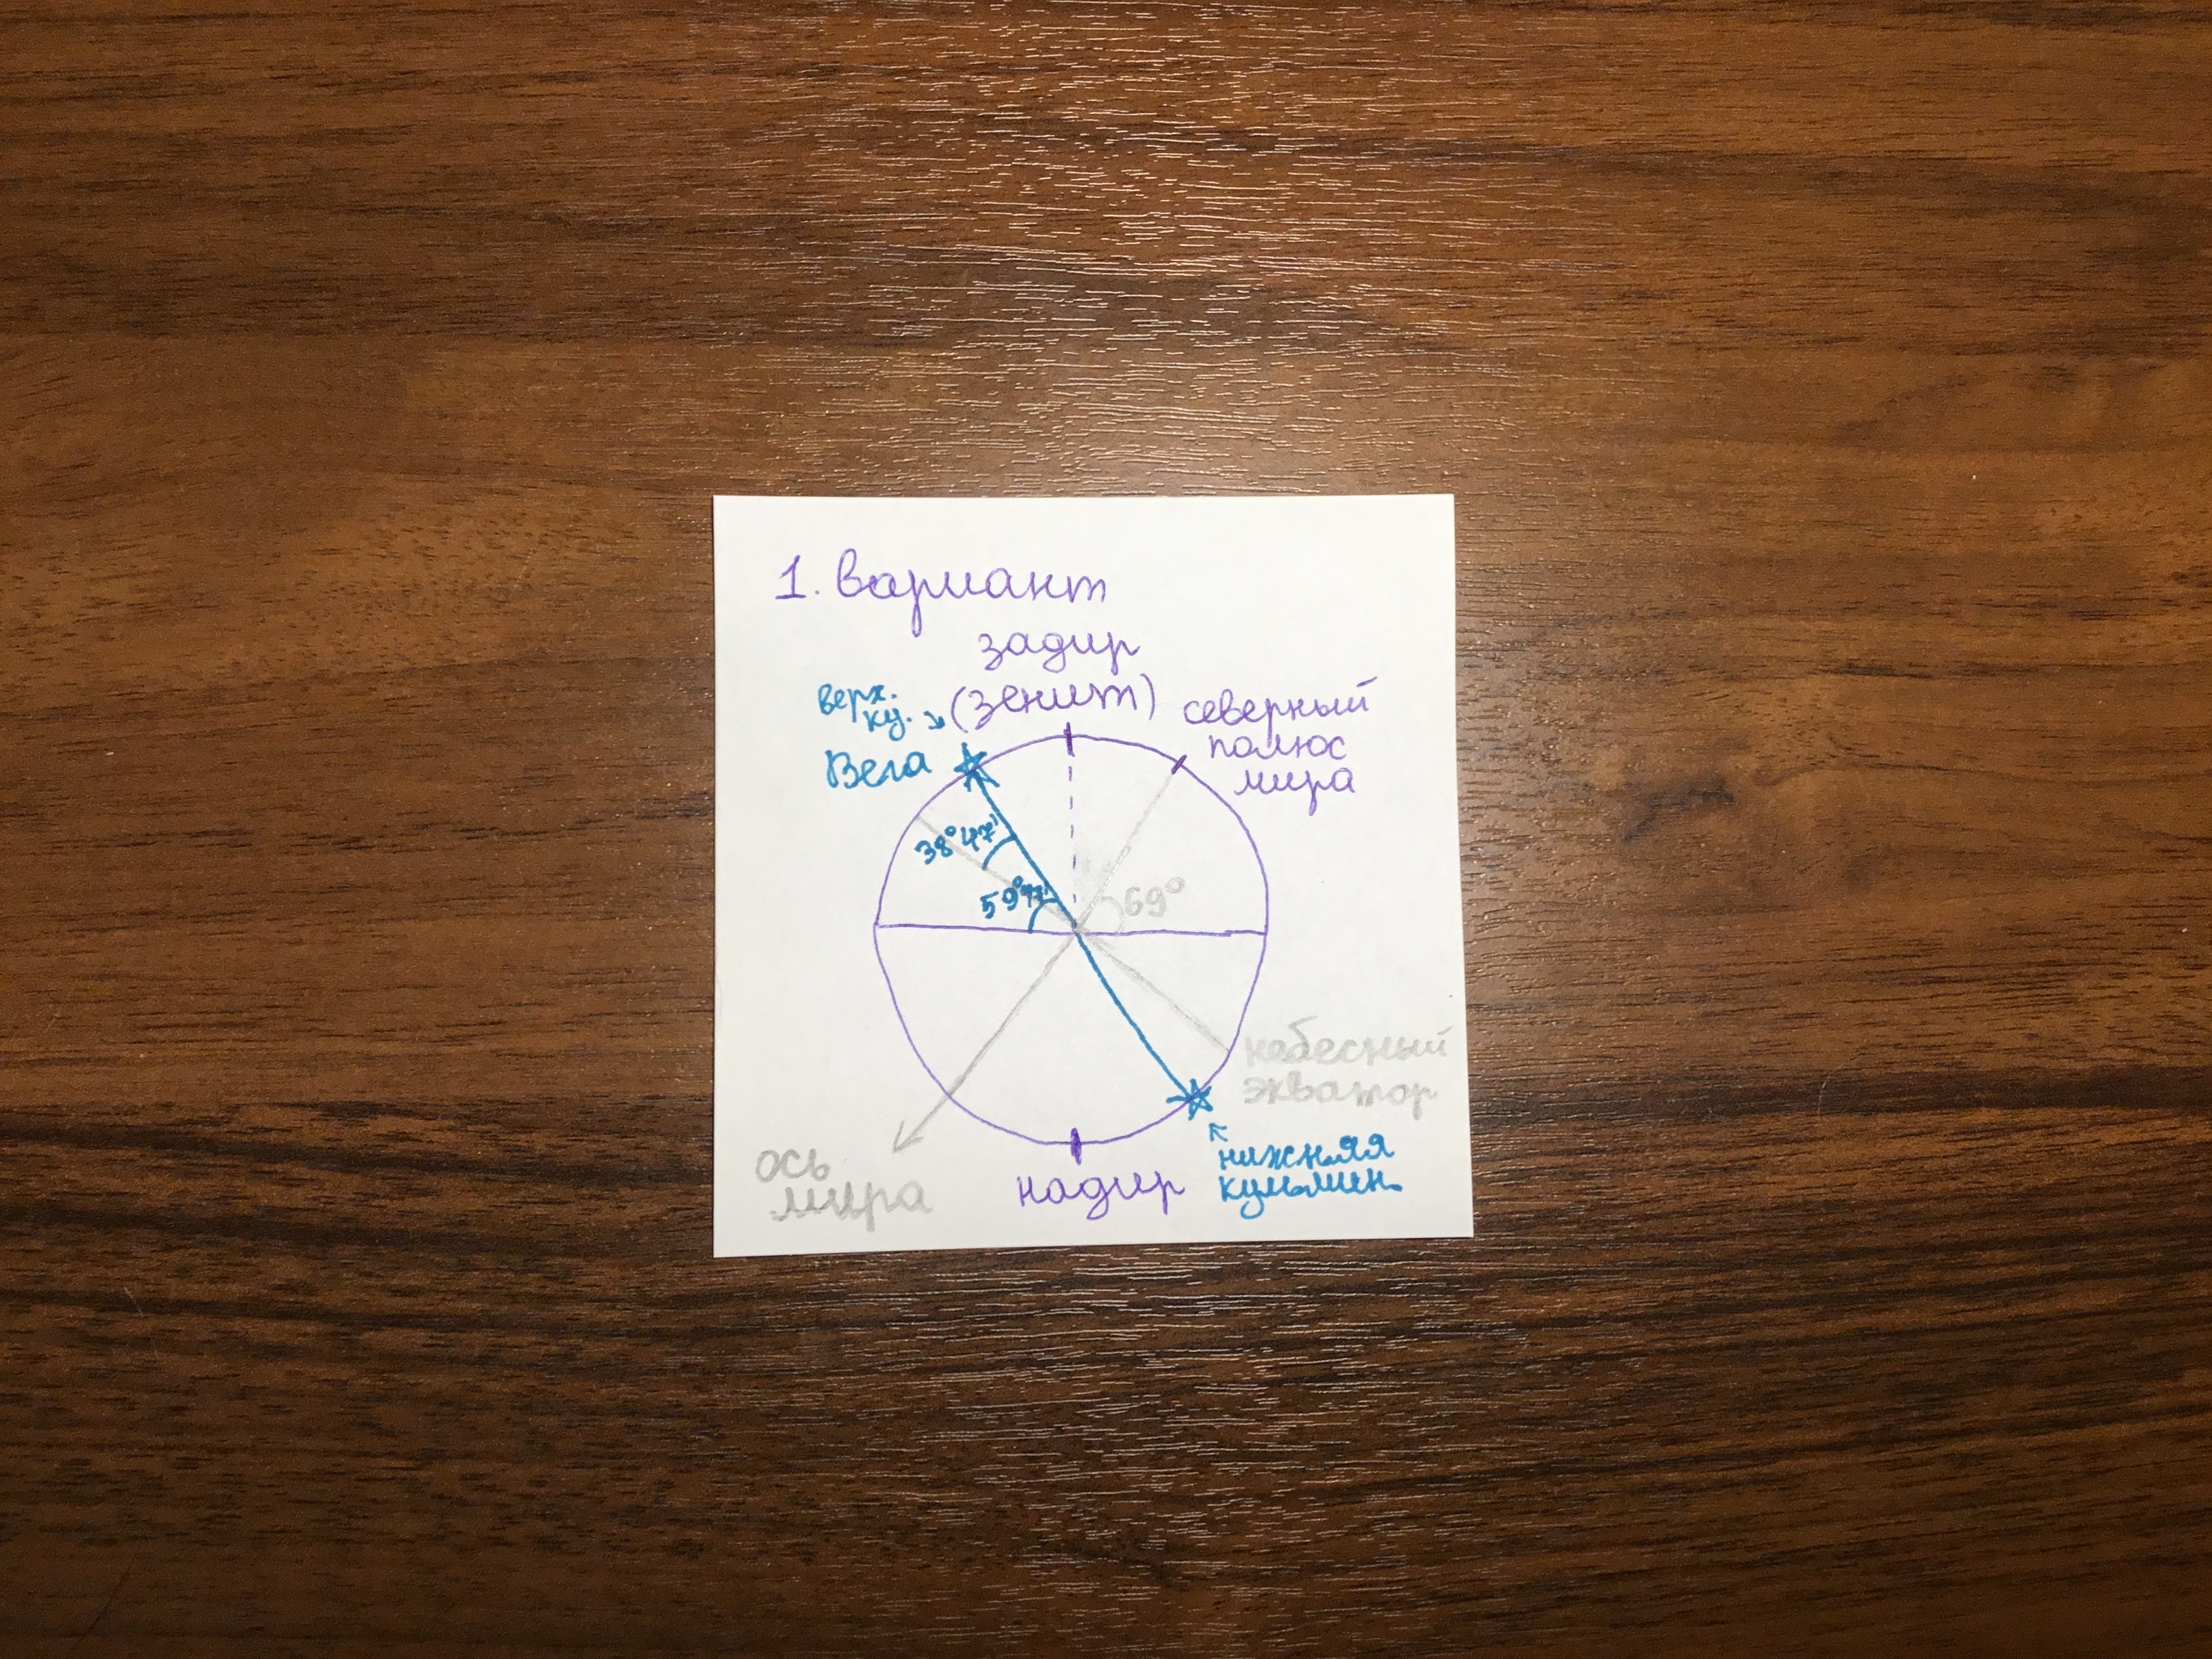 1. вариант
задир
(зенит)
верх.
ку.
Вега
северный
полюс
мира
38°47'
59°47'
69°
небесный
экватор
ось
мира
надир
нижняя
кульмин.